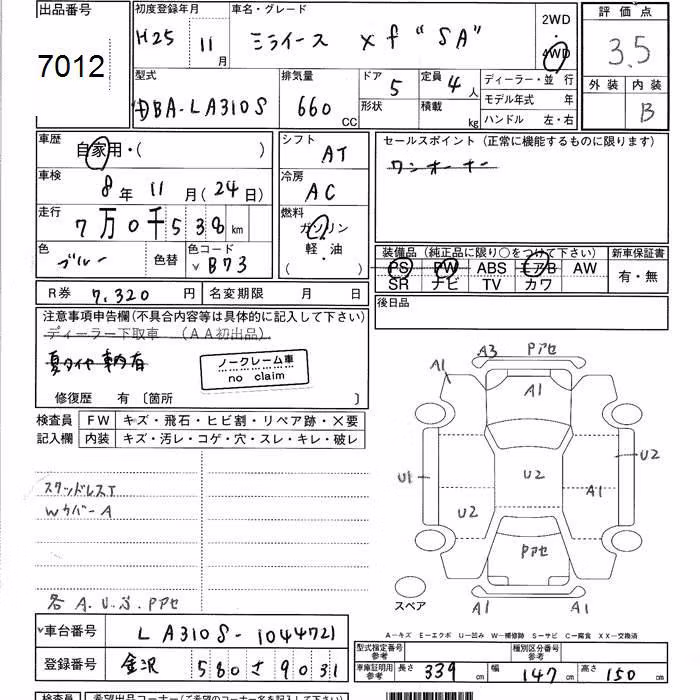 出品番号
7012
初度登録年月
H25 11 月
車名・グレード
ミライース Xf "SA"
2WD
4WD
評価点
3.5
外装 内装
B
型式
DBA-LA310S
排気量
660 CC
ドア 5
形状
定員 4 人
積載 kg
ディーラー・並行
モデル年式 年
ハンドル 左・右
車歴
自家用・( )
車検
8 年 11 月 (24 日)
走行
7 万 0 千 5 3 8 km
色
ブルー
色替
色コード
B73
R券 7,320 円
名変期限 月 日
シフト
AT
冷房
AC
燃料
ガソリン
軽・油
( )
セールスポイント (正常に機能するものに限ります)
ワンオーナー
装備品 (純正品に限り○をつけて下さい)
PS PW ABS エアB AW
SR ナビ TV カワ
新車保証書
有・無
後日品
注意事項申告欄(不具合内容等は具体的に記入して下さい)
ディーラー下取車 (AA初出品)
夏タイヤ車内有
ノークレーム車
no claim
修復歴 有 〔箇所 〕
検査員 記入欄
FW キズ・飛石・ヒビ割・リペア跡・×要
内装 キズ・汚レ・コゲ・穴・スレ・キレ・破レ
スタッドレスT
WカバーA
各 A.U.S.Pアセ
A3 Pアセ
A1
A1
U1
U2
U2
U2
A1
Pアセ
A1
A1
スペア
A-キズ E-エクボ U-凹み W-補修跡 S-サビ C-腐食 XX-交換済
車台番号 LA310S-1044721
登録番号 金沢 580 さ 9031
型式指定番号 参考
種別区分番号 参考
車庫証明用 参考 長さ 339 cm 幅 147 cm 高さ 150 cm
検査員
希望出品コーナー(ご希望のコーナー名を記入して下さい)